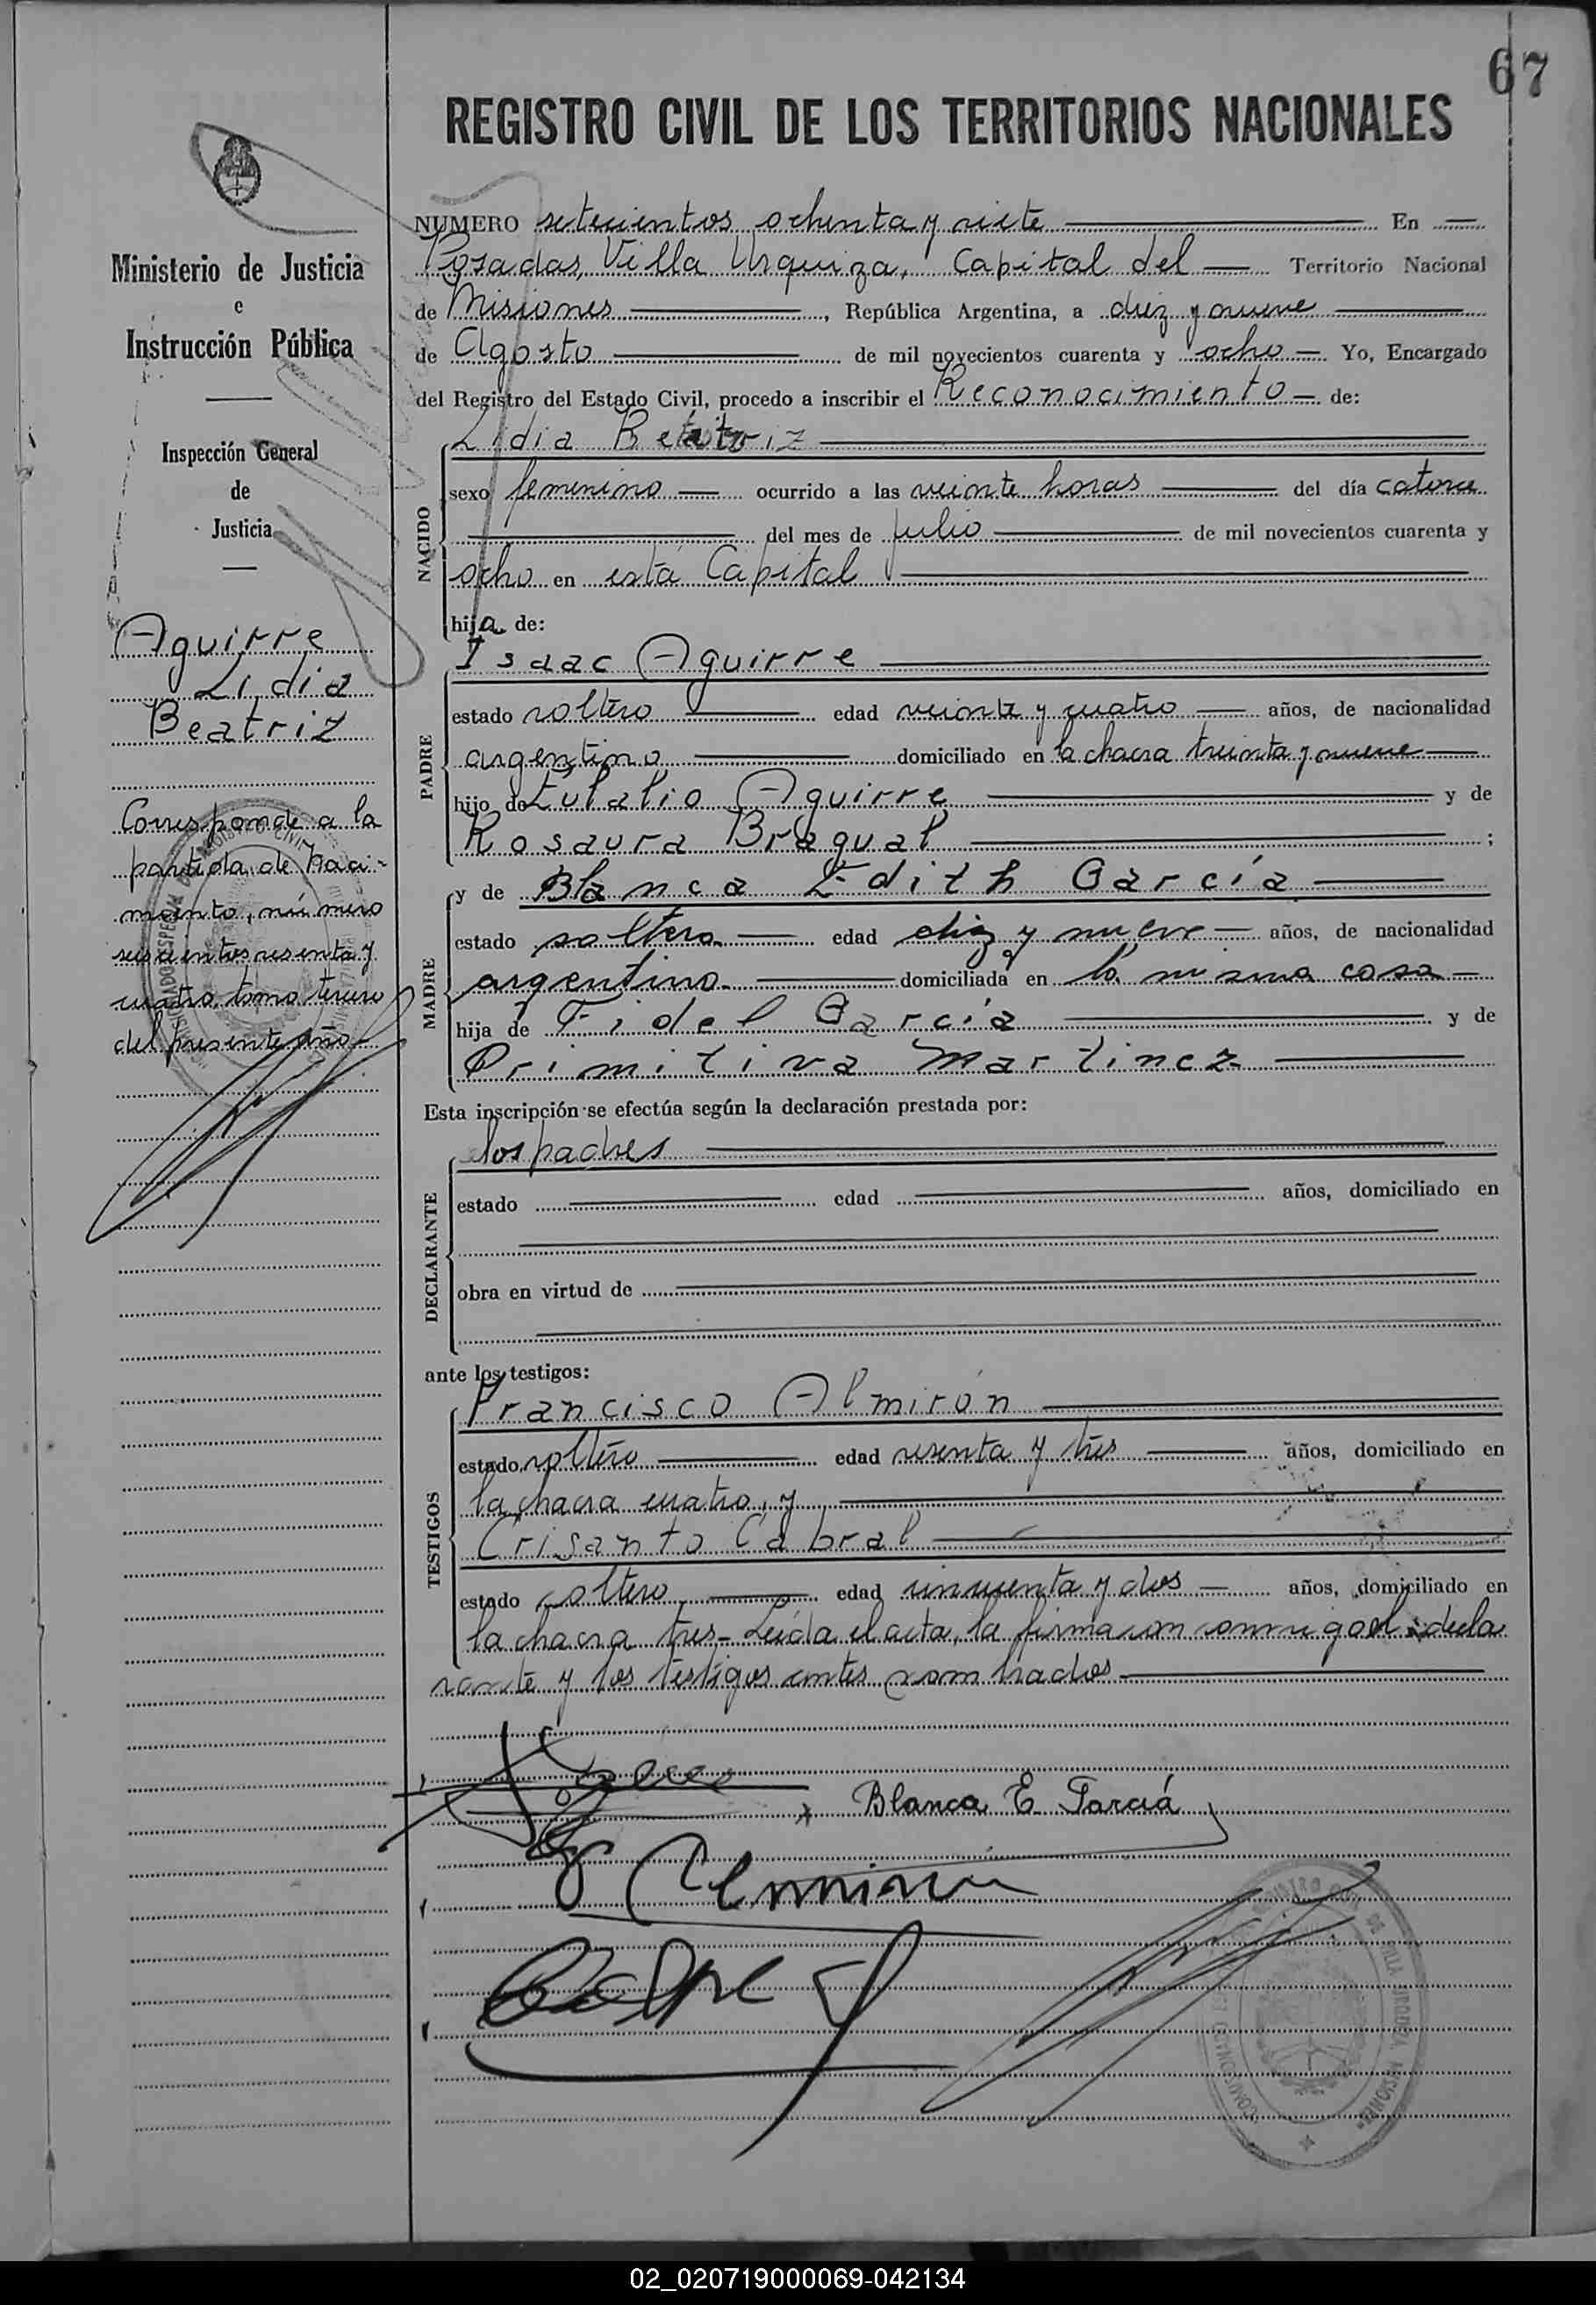 67
REGISTRO CIVIL DE LOS TERRITORIOS NACIONALES
Ministerio de Justicia
e
Instrucción Pública
Inspección General
de
Justicia
Aguirre
Lidia
Beatriz
Corresponde a la
partida de Naci-
miento, número
seiscientos sesenta y
cuatro, tomo tercero
del presente año
NUMERO setecientos ochenta y siete En
Posadas, Villa Urquiza, Capital del Territorio Nacional
de Misiones, República Argentina, a diez y nueve
de Agosto de mil novecientos cuarenta y ocho Yo, Encargado
del Registro del Estado Civil, procedo a inscribir el Reconocimiento de:
NACIDO
Lidia
sexo femenino ocurrido a las veinte horas del día catorce
del mes de julio de mil novecientos cuarenta y
ocho en esta Capital
hija de:
PADRE
Isaac Aguirre
estado soltero edad veinte y cuatro años, de nacionalidad
argentino domiciliado en la chacra treinta y nueve
hijo de Eulalio Aguirre y de
Rosaura Bragual ;
MADRE
y de Blanca Edith García
estado soltera edad diez y nueve años, de nacionalidad
argentina domiciliada en la misma casa
hija de Fidel García y de
Primitiva Martinez
Esta inscripción se efectúa según la declaración prestada por:
DECLARANTE
los padres
estado edad años, domiciliado en
obra en virtud de
ante los testigos:
TESTIGOS
Francisco Almirón
estado soltero edad sesenta y tres años, domiciliado en
la chacra cuatro, y
Crisanto Cabral
estado soltero edad cincuenta y dos años, domiciliado en
la chacra tres- Leída el acta, la firmaron conmigo el decla
rante y los testigos antes nombrados
Blanca E García
REGISTRO CIVIL DE VILLA URQUIZA MISIONES
02_020719000069-042134